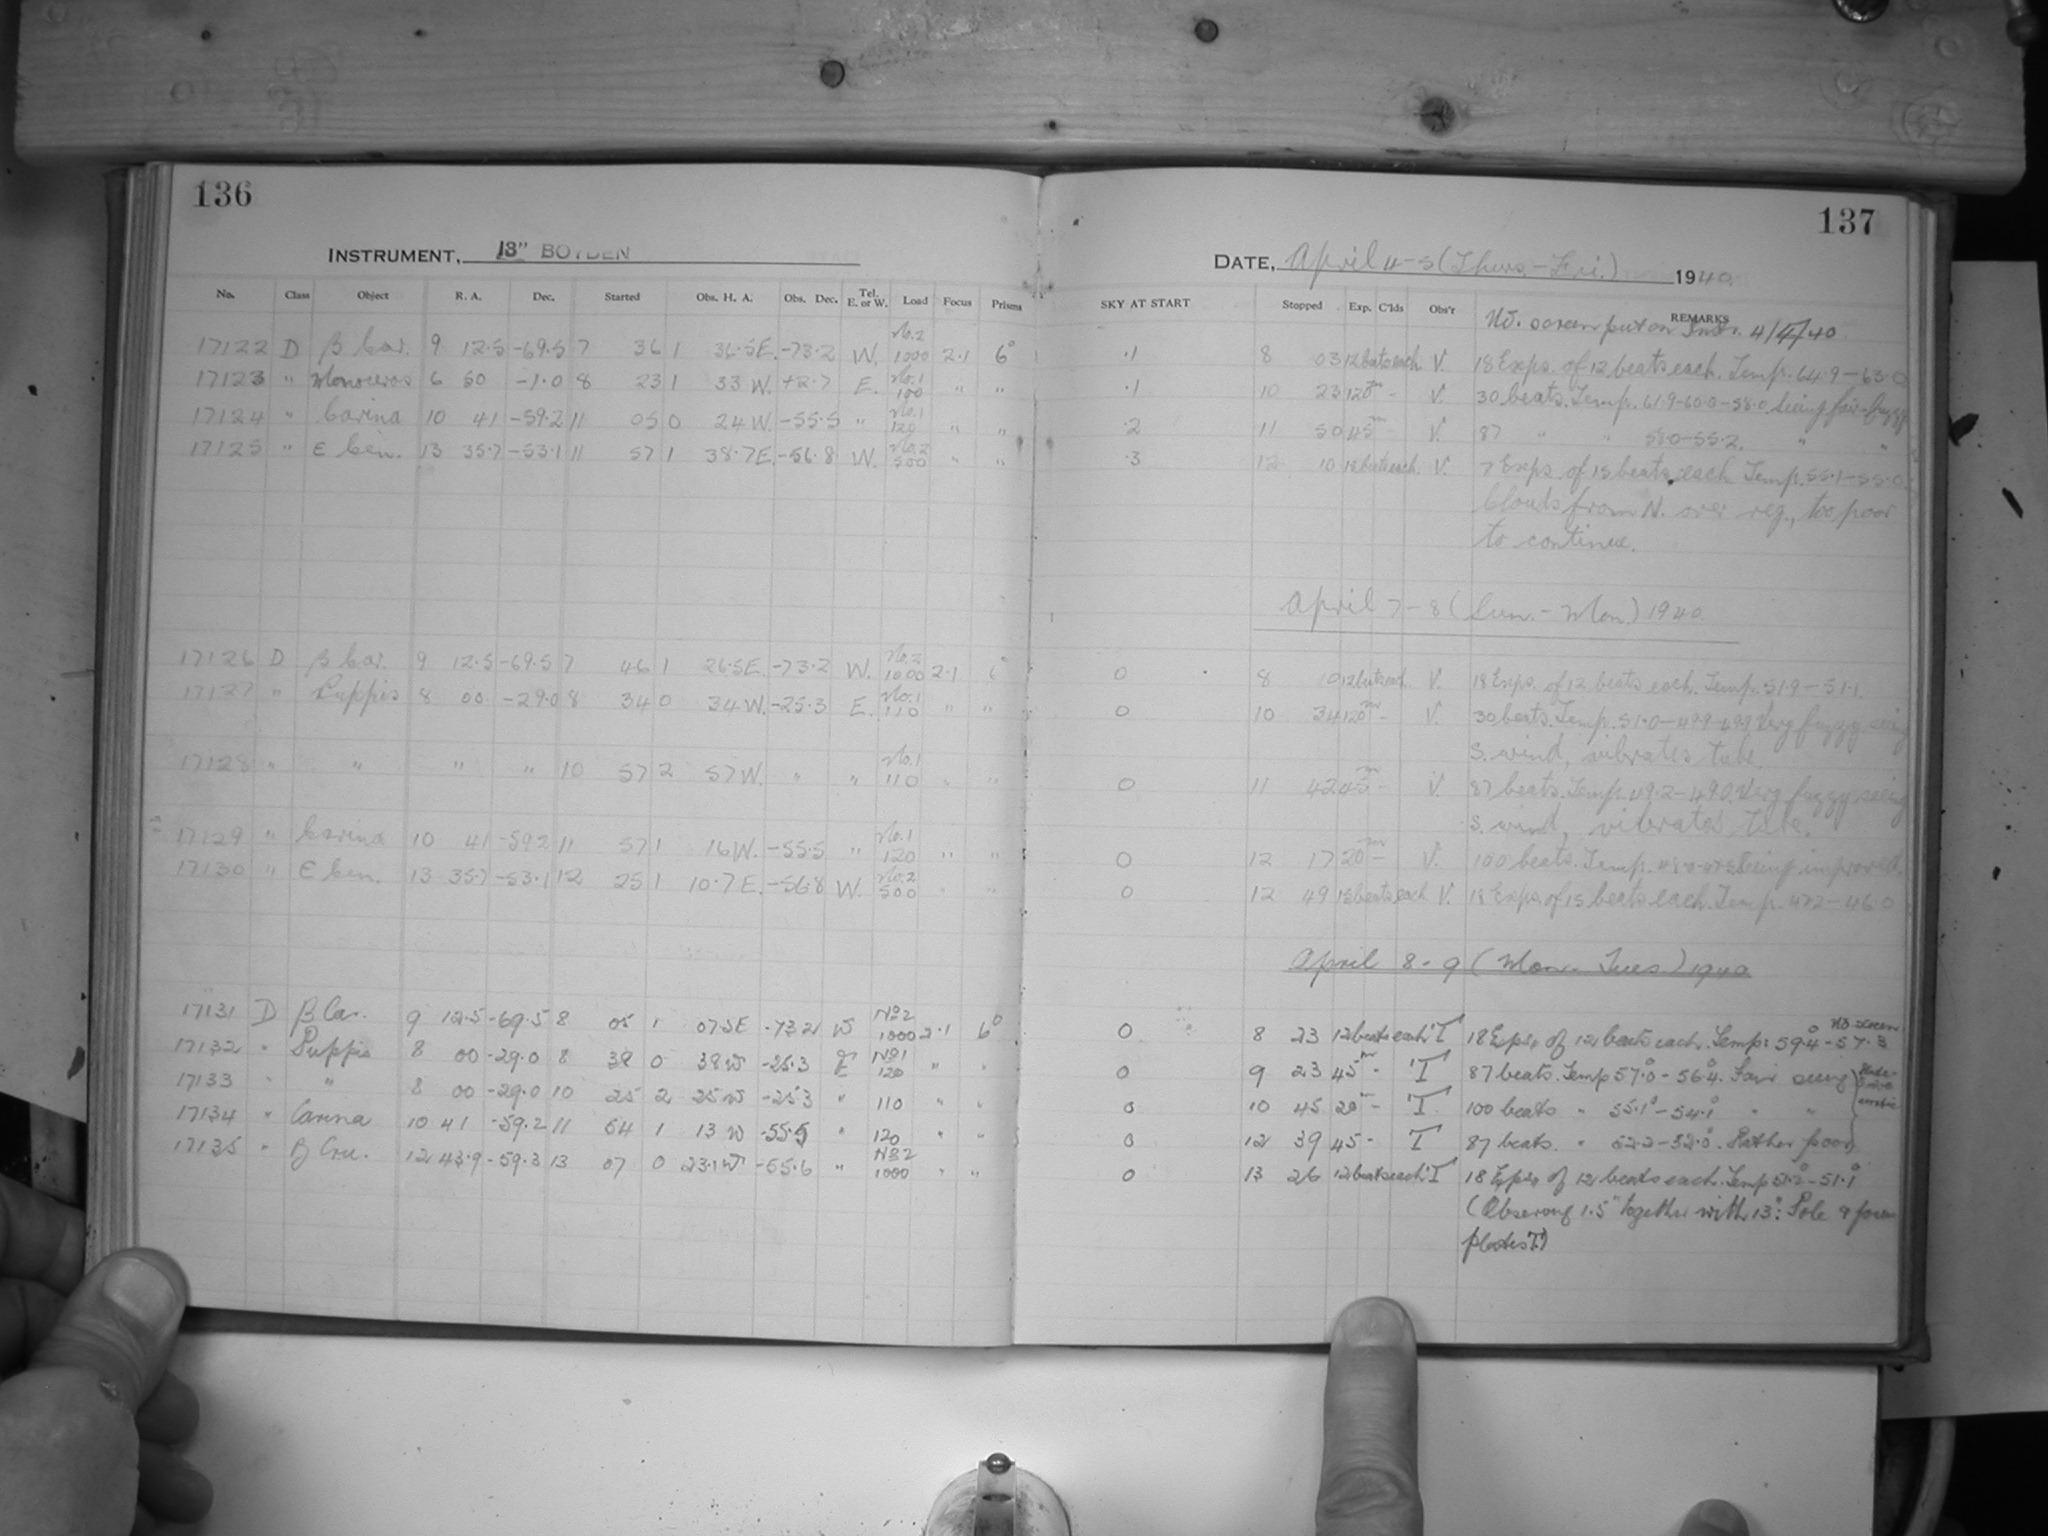 136
137
INSTRUMENT, 13" BOYDEN
DATE, April 4-5 (Thurs.-Fri.) 1940.
No. Class Object R. A. Dec. Started Obs. H. A. Obs. Dec. Tel. E. or W. Load Focus Prisms SKY AT START Stopped Exp. C'lds Obs'r REMARKS
4/4/40
17122 D β Car. 9 12.5 -69.5 7 36 1 36.5E. -73.2 W. No.2 1000 2.1 6° .1 8 03 12 beats each V. 18 Exps. of 12 beats each. Temp. 64.9-63.0
17123 " Monoceros 6 50 -1.0 8 23 1 33 W. +2.7 E. No.1 100 " " .1 10 23 120m - V. 30 beats. Temp. 61.9-60.0-58.0 Seeing fair-fuzzy
17124 " Carina 10 41 -59.2 11 05 0 24 W. -55.5 " No.1 120 " " .2 11 50 45m - V. 87 " " 58.0-55.2. " "
17125 " E Cen. 13 35.7 -53.1 11 57 1 38.7E. -56.8 W. No.2 500 " " .3 12 10 15 beats each V. 7 Exps. of 15 beats each Temp. 55.1-55.0.
Clouds from N. over reg., too poor
to continue.
April 7-8 (Sun.-Mon.) 1940
17126 D β Car. 9 12.5 -69.5 7 46 1 26.5E. -73.2 W. No.2 1000 2.1 6° 0 8 10 12 beats each V. 18 Exps. of 12 beats each. Temp. 51.9-51.1.
17127 " Puppis 8 00 -29.0 8 34 0 34 W. -25.3 E. No.1 110 " " 0 10 34 120m - V. 30 beats. Temp. 51.0-49.9-49.9 Very fuzzy seeing
S. wind, vibrates tube.
17128 " " " " 10 57 2 57 W. " " No.1 110 " " 0 11 42 45m - V. 87 beats. Temp. 49.2-49.0. Very fuzzy seeing
S. wind, vibrates tube.
17129 " Carina 10 41 -59.2 11 57 1 16 W. -55.5 " No.1 120 " " 0 12 17 20m - V. 100 beats. Temp. Seeing improved.
17130 " E Cen. 13 35.7 -53.1 12 25 1 10.7 E. -56.8 W. No.2 500 " " 0 12 49 15 beats each V. 18 Exps. of 15 beats each. Temp. 47.2-46.0
April 8-9 (Mon.-Tues.) 1940
17131 D β Car. 9 12.5 -69.5 8 05 1 07.5E -73.2 W No2 1000 2.1 6° 0 8 23 12 beats each T 18 Exps. of 12 beats each. Temp: 59.4-57.3
17132 " Puppis 8 00 -29.0 8 38 0 38 W -25.3 E No1 120 " " 0 9 23 45m - T 87 beats. Temp 57.0-56.4. Fair seeing
17133 " " 8 00 -29.0 10 25 2 25 W -25.3 " 110 " " 0 10 45 20m - T 100 beats " 55.1-54.1 " "
17134 " Carina 10 41 -59.2 11 54 1 13 W -55.5 " 120 " " 0 12 39 45 - T 87 beats. " 52.2-52.0. Rather poor
17135 " β Cru. 12 43.9 -59.3 13 07 0 23.1 W -55.6 " No2 1000 " " 0 13 26 12 beats each T 18 Exps. of 12 beats each. Temp 51.2-51.1
(Observing 1.5" together with 13": Pole &
plates T.)